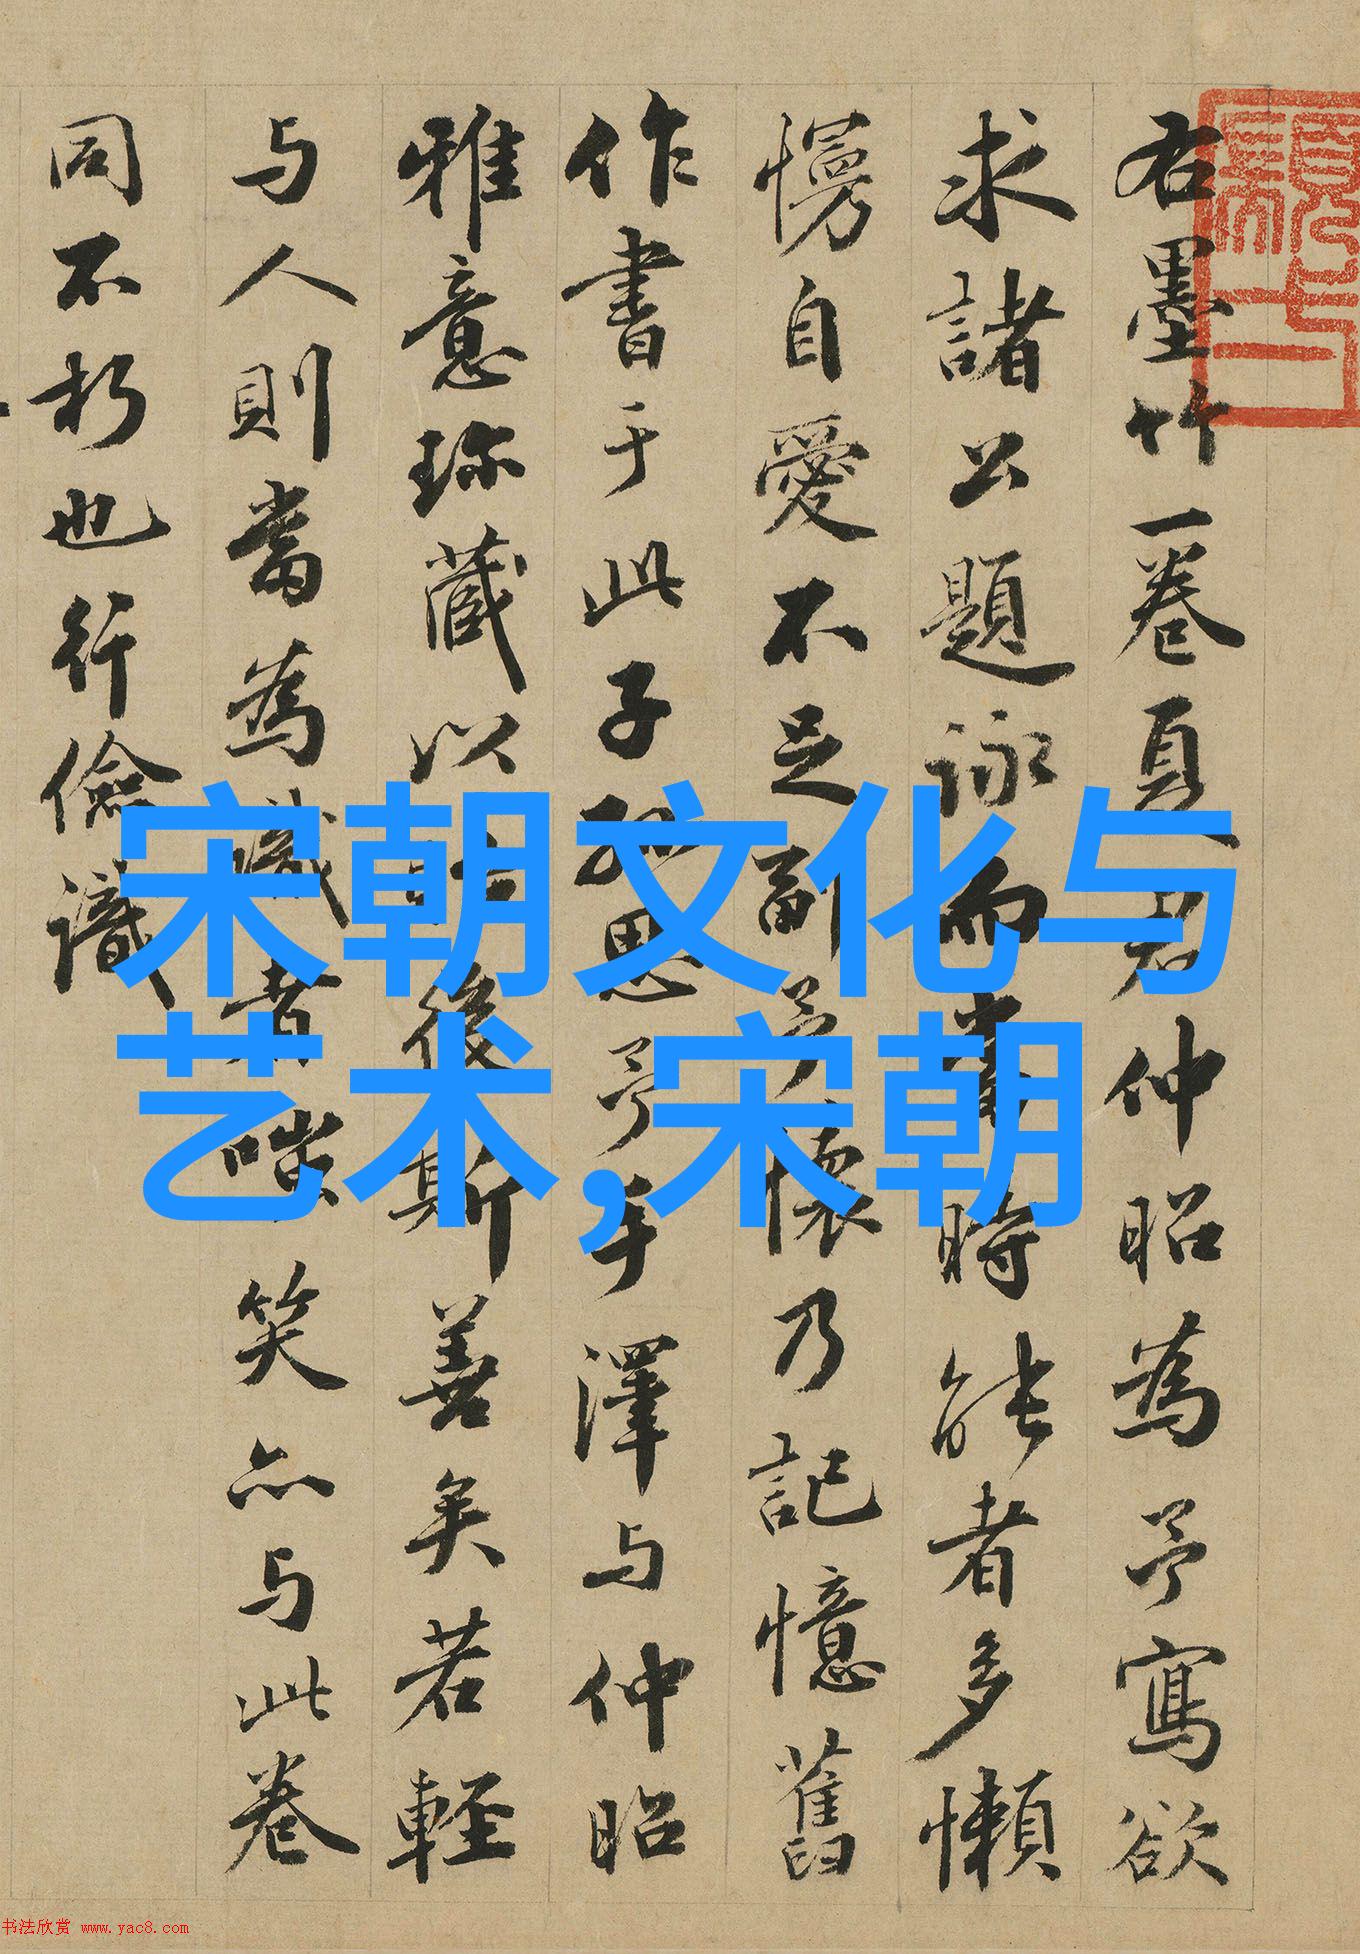 右墨竹一卷夏君仲昭為予寫欲
求諸公題詠而書時能者多懶
慢自愛不足副予懷乃記憶舊
作書于此子孫思予手澤与仲昭
雅意珍藏以後斯善矣若輕
与人則當為識者嗤笑亦与此卷
同不朽也行儉識
宋朝文化与
艺术,宋朝
书法欣赏 www.yac8.com